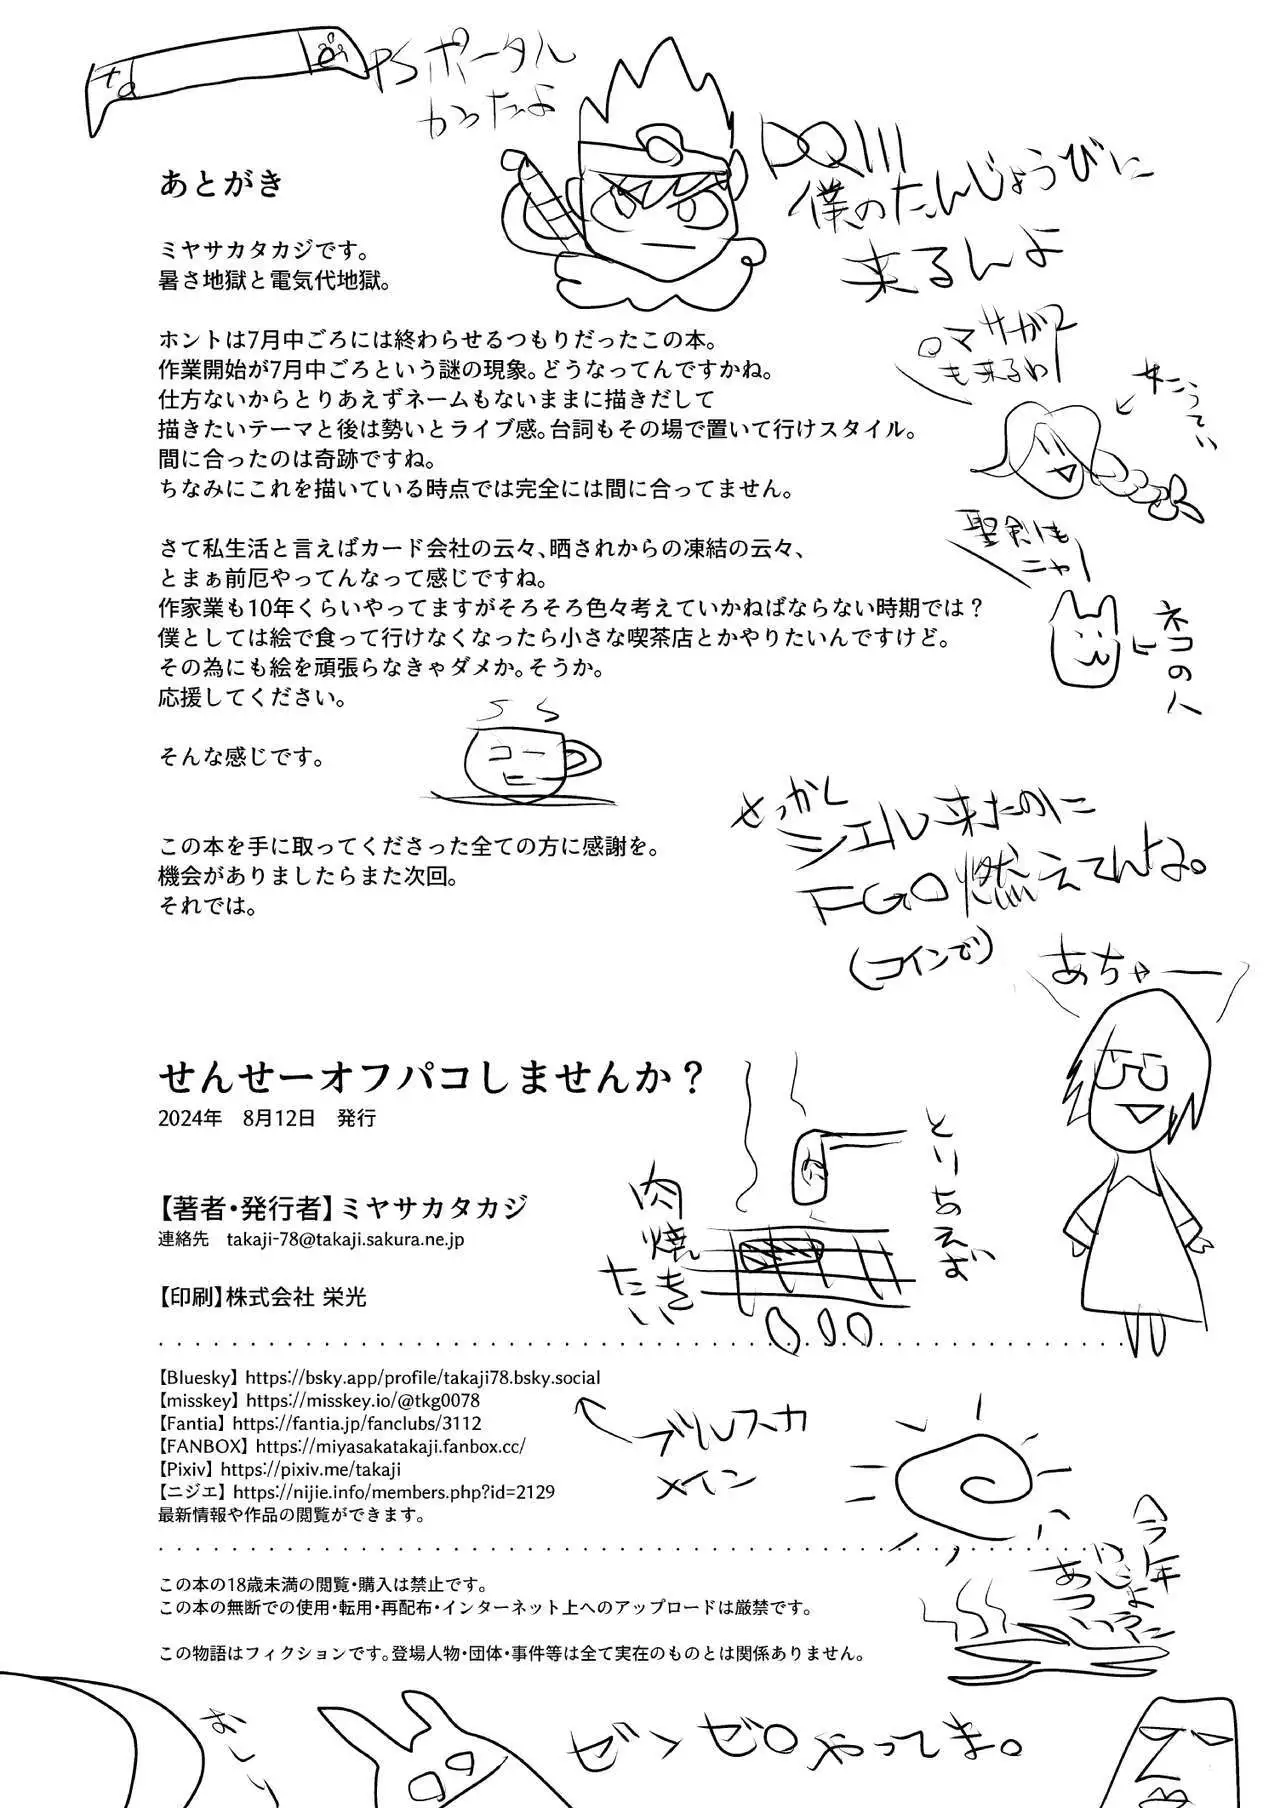 PSポータル
かったよ
DQIII
僕のたんじょうびに
来るんよ
あとがき
ミヤサカタカジです。
暑さ地獄と電気代地獄。
ロマサガ2
も来るわ
ホントは7月中ごろには終わらせるつもりだったこの本。
作業開始が7月中ごろという謎の現象。どうなってんですかね。
仕方ないからとりあえずネームもないままに描きだして
描きたいテーマと後は勢いとライブ感。台詞もその場で置いて行けスタイル。
間に合ったのは奇跡ですね。
ちなみにこれを描いている時点では完全には間に合ってません。
女こうてい
聖剣も
ニャ
ネコの人
さて私生活と言えばカード会社の云々、晒されからの凍結の云々、
とまぁ前厄やってんなって感じですね。
作家業も10年くらいやってますがそろそろ色々考えていかねばならない時期では？
僕としては絵で食って行けなくなったら小さな喫茶店とかやりたいんですけど。
その為にも絵を頑張らなきゃダメか。そうか。
応援してください。
そんな感じです。
コー
ヒー
せっかく
シエル来たのに
FGO燃えてんよ。
(コインで)
あちゃー
この本を手に取ってくださった全ての方に感謝を。
機会がありましたらまた次回。
それでは。
せんせーオフパコしませんか？
2024年　8月12日　発行
とりあえず
肉焼き
たい
【著者・発行者】ミヤサカタカジ
連絡先　takaji-78@takaji.sakura.ne.jp
【印刷】株式会社 栄光
【Bluesky】 https://bsky.app/profile/takaji78.bsky.social
【misskey】 https://misskey.io/@tkg0078
【Fantia】 https://fantia.jp/fanclubs/3112
【FANBOX】 https://miyasakatakaji.fanbox.cc/
【Pixiv】 https://pixiv.me/takaji
【ニジエ】 https://nijie.info/members.php?id=2129
最新情報や作品の閲覧ができます。
ブルスカ
メイン
今年
この本の18歳未満の閲覧・購入は禁止です。
この本の無断での使用・転用・再配布・インターネット上へのアップロードは厳禁です。
この物語はフィクションです。登場人物・団体・事件等は全て実在のものとは関係ありません。
おしり
ゼンゼロやってま。